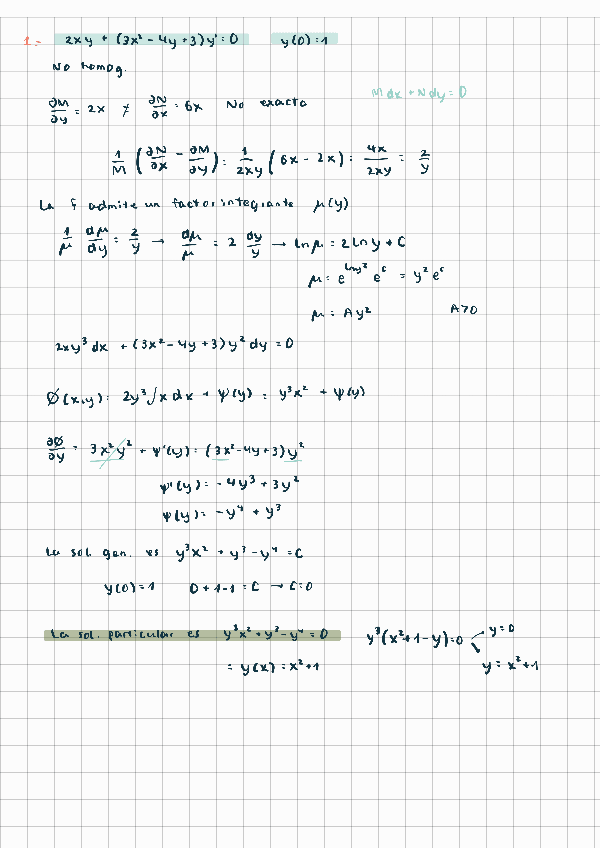 1.- 2xy + (3x² - 4y + 3) y' = 0 y(0) = 1
No homog.
Mdx + Ndy = 0
∂M/∂y = 2x ≠ ∂N/∂x = 6x No exacta
1/M (∂N/∂x - ∂M/∂y) = 1/2xy (6x - 2x) = 4x/2xy = 2/y
La f admite un factor integrante μ(y)
1/μ dμ/dy = 2/y → dμ/μ = 2 dy/y → ln μ = 2 ln y + C
μ = e^{ln y²} e^c = y² e^c
μ = Ay² A>0
2xy³ dx + (3x² - 4y + 3) y² dy = 0
Ø(x,y) = 2y³ ∫x dx + ψ(y) = y³x² + ψ(y)
∂Ø/∂y = 3x²y² + ψ'(y) = (3x² - 4y + 3) y²
ψ'(y) = -4y³ + 3y²
ψ(y) = -y⁴ + y³
La sol. gen. es y³x² + y³ - y⁴ = C
y(0) = 1 0 + 1 - 1 = C → C = 0
La sol. particular es y³x² + y³ - y⁴ = 0 y³(x² + 1 - y) = 0 y = 0
= y(x) = x² + 1 y = x² + 1